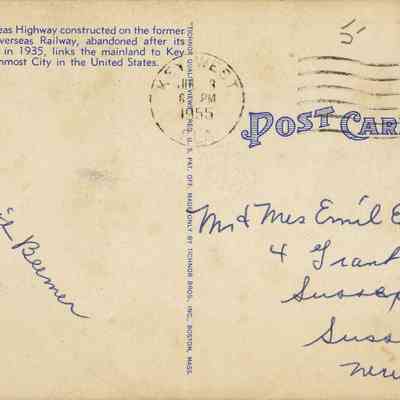 eas Highway constructed on the former
verseas Railway, abandoned after its
in 1935, links the mainland to Key
nmost City in the United States.
"TICHNOR QUALITY VIEWS," REG. U. S. PAT. OFF. MADE ONLY BY TICHNOR BROS., INC., BOSTON, MASS.
KEY WEST
3
PM
1955
5
POST CAR
Beemer
Mr & Mrs Emil E
4 Grant
Sussex
Suss
New